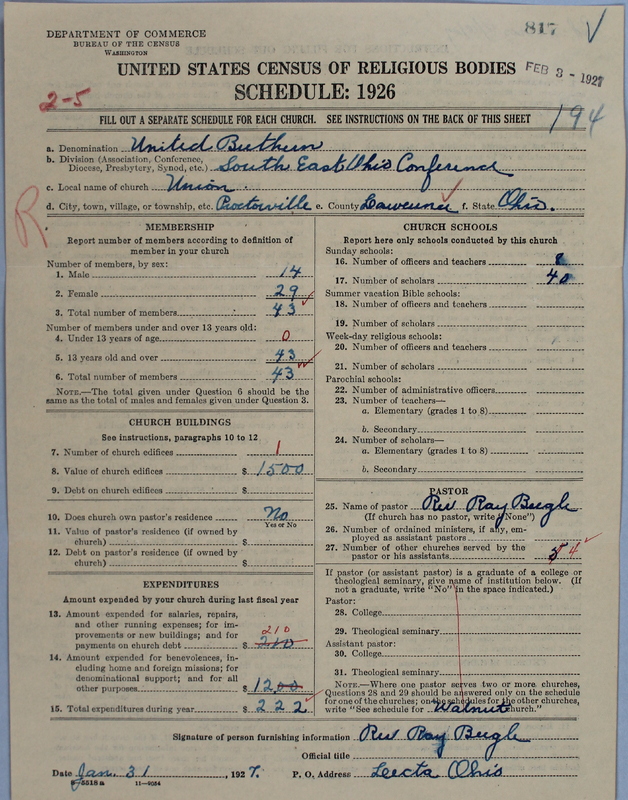 DEPARTMENT OF COMMERCE
BUREAU OF THE CENSUS
WASHINGTON
817
UNITED STATES CENSUS OF RELIGIOUS BODIES
FEB 3 - 1927
SCHEDULE: 1926
2-5
FILL OUT A SEPARATE SCHEDULE FOR EACH CHURCH. SEE INSTRUCTIONS ON THE BACK OF THIS SHEET
194
a. Denomination United Bretheren
b. Division (Association, Conference, Diocese, Presbytery, Synod, etc.) South East Ohio Conference
c. Local name of church Union
d. City, town, village, or township, etc. Proctorville e. County Lawrence f. State Ohio.
R
MEMBERSHIP
Report number of members according to definition of
member in your church
Number of members, by sex:
1. Male 14
2. Female 29
3. Total number of members 43
Number of members under and over 13 years old:
4. Under 13 years of age 0
5. 13 years old and over 43
6. Total number of members 43
NOTE.—The total given under Question 6 should be
same as the total of males and females given under Question 3.
CHURCH BUILDINGS
See instructions, paragraphs 10 to 12
7. Number of church edifices 1
8. Value of church edifices $ 1500
9. Debt on church edifices $
10. Does church own pastor's residence No
Yes or No
11. Value of pastor's residence (if owned by
church) $
12. Debt on pastor's residence (if owned by
church) $
EXPENDITURES
Amount expended by your church during last fiscal year
13. Amount expended for salaries, repairs,
and other running expenses; for im-
provements or new buildings; and for
210
payments on church debt $ 210
14. Amount expended for benevolences, in-
cluding home and foreign missions; for
denominational support; and for all
other purposes $ 1200
15. Total expenditures during year $ 222
CHURCH SCHOOLS
Report here only schools conducted by this church
Sunday schools:
16. Number of officers and teachers 8
17. Number of scholars 40
Summer vacation Bible schools:
18. Number of officers and teachers
19. Number of scholars
Week-day religious schools:
20. Number of officers and teachers
21. Number of scholars
Parochial schools:
22. Number of administrative officers
23. Number of teachers—
a. Elementary (grades 1 to 8)
b. Secondary
24. Number of scholars—
a. Elementary (grades 1 to 8)
b. Secondary
PASTOR
25. Name of pastor Rev Ray Beegle
(If church has no pastor, write "None")
26. Number of ordained ministers, if any, em-
ployed as assistant pastors
27. Number of other churches served by the
pastor or his assistants 4
If pastor (or assistant pastor) is a graduate of a college or
theological seminary, give name of institution below. (If
not a graduate, write "No" in the space indicated.)
Pastor:
28. College
29. Theological seminary
Assistant pastor:
30. College
31. Theological seminary
NOTE.—Where one pastor serves two or more churches,
Questions 28 and 29 should be answered only on the schedule
for one of the churches; on the schedules for the other churches,
write "See schedule for Walnut church."
Signature of person furnishing information Rev Ray Beegle
Official title
Date Jan. 31, 1927. P. O. Address Leecta Ohio
8-5518a 11-9084